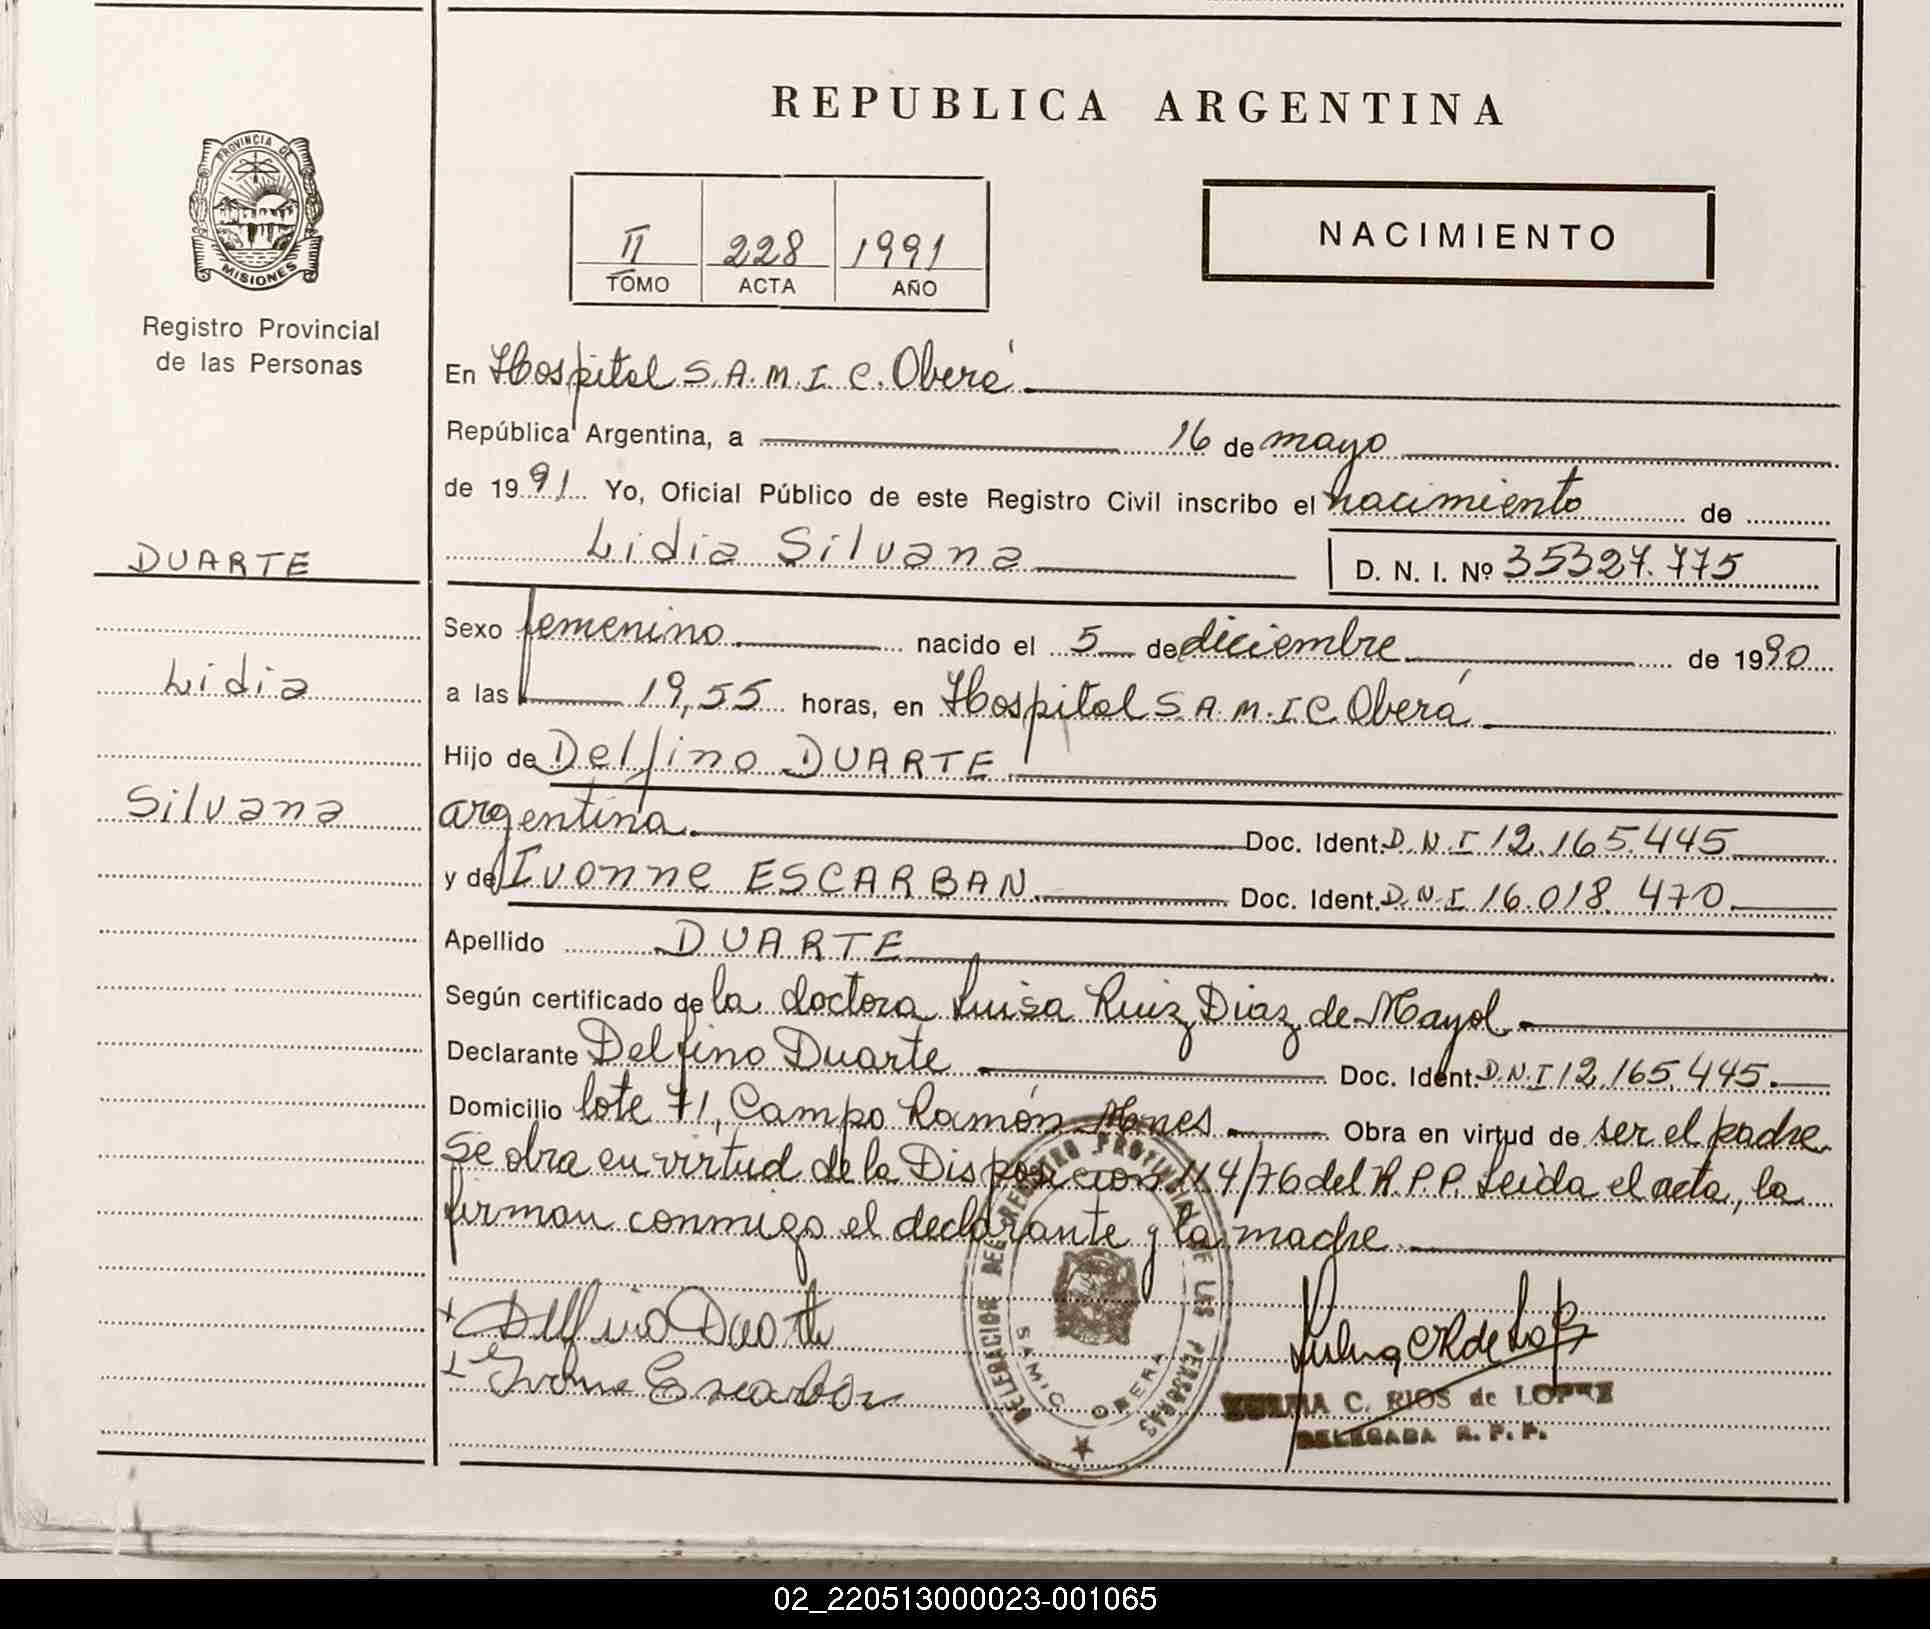 REPUBLICA ARGENTINA
PROVINCIA DE
MISIONES
Registro Provincial
de las Personas
II 228 1991
TOMO ACTA AÑO
NACIMIENTO
En Hospital S.A.M.I.C. Oberá
República Argentina, a 16 de mayo
de 1991. Yo, Oficial Público de este Registro Civil inscribo el nacimiento de
Lidia Silvana D. N. I. Nº 35327.775
DUARTE
Lidia
Silvana
Sexo femenino nacido el 5 de diciembre de 1990
a las 19,55 horas, en Hospital S.A.M.I.C. Oberá
Hijo de Delfino DUARTE
argentina. Doc. Ident. D.N.I 12.165.445
y de Ivonne ESCARBAN Doc. Ident. D.N.I 16.018.470
Apellido DUARTE
Según certificado de la doctora Luisa Ruiz Diaz de Mayol
Declarante Delfino Duarte Doc. Ident. D.N.I 12.165.445.
Domicilio lote 71, Campo Ramón Mnes. Obra en virtud de ser el padre
Se obra en virtud de la Disposicion 114/76 del R.P.P. Leida el acta, la
firman conmigo el declarante y la madre
Delfino Duarte
Ivonne Escarban
DELEGACION DEL REGISTRO PROVINCIAL DE LAS PERSONAS
SAMIC OBERA
C. RIOS de LOPEZ
DELEGADA R. P. P.
02_220513000023-001065